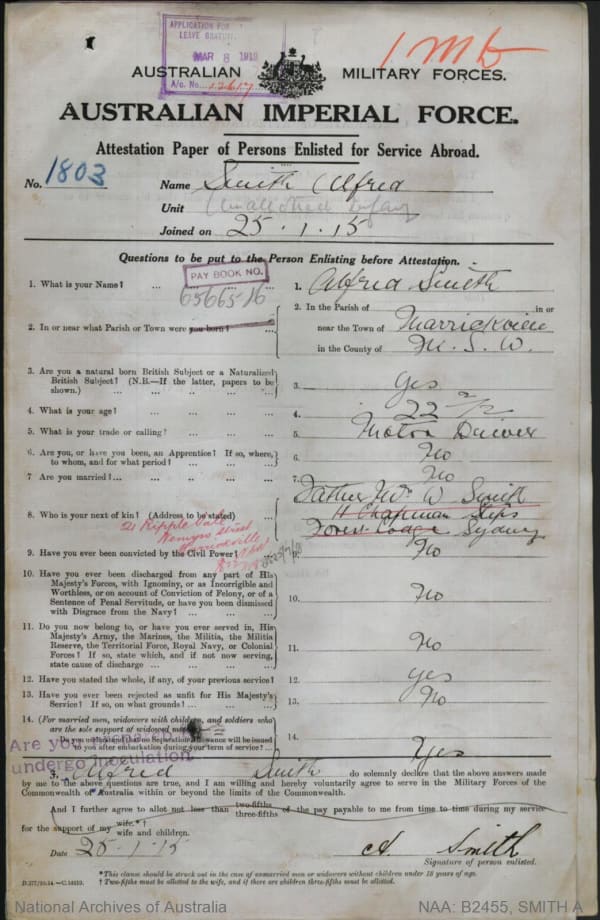 APPLICATION FOR
LEAVE GRATUITY
MAR 8 1919
A/c. No. 12617
1 Mb
AUSTRALIAN MILITARY FORCES.
AUSTRALIAN IMPERIAL FORCE.
Attestation Paper of Persons Enlisted for Service Abroad.
No. 1803
Name Smith Alfred
Unit Unallotted Infany
Joined on 25.1.15
Questions to be put to the Person Enlisting before Attestation.
PAY BOOK NO.
65665
1. What is your Name? ... ... ... ... 1. Alfred Smith
2. In or near what Parish or Town were you born? ... 2. In the Parish of in or
near the Town of Marrickville
in the County of N.S.W.
3. Are you a natural born British Subject or a Naturalized
British Subject? (N.B.—If the latter, papers to be
shown.) ... ... ... ... 3. Yes
4. What is your age? ... ... ... ... 4. 22 2/12
5. What is your trade or calling? ... ... ... 5. Motor Driver
6. Are you, or have you been, an Apprentice? If so, where,
to whom, and for what period? ... ... ... 6. No
7. Are you married?... ... ... ... 7. No
8. Who is your next of kin? (Address to be stated) ... Father W. Smith
4 Chapman Steps
Forest Lodge Sydney
Marrickville
9. Have you ever been convicted by the Civil Power? 9. No
10. Have you ever been discharged from any part of His
Majesty's Forces, with Ignominy, or as Incorrigible and
Worthless, or on account of Conviction of Felony, or of a
Sentence of Penal Servitude, or have you been dismissed
with Disgrace from the Navy? ... ... ... 10. No
11. Do you now belong to, or have you ever served in, His
Majesty's Army, the Marines, the Militia, the Militia
Reserve, the Territorial Force, Royal Navy, or Colonial
Forces? If so, state which, and if not now serving,
state cause of discharge ... ... ... 11. No
12. Have you stated the whole, if any, of your previous service? 12. Yes
13. Have you ever been rejected as unfit for His Majesty's
Service? If so, on what grounds? ... ... 13. No
14. (For married men, widowers with children, and soldiers who
are the sole support of widowed mother)—
Do you understand that no Separation Allowance will be issued
to you after embarkation during your term of service?... 14.
Are you prepared to
undergo inoculation Yes
I, Alfred Smith do solemnly declare that the above answers made
by me to the above questions are true, and I am willing and hereby voluntarily agree to serve in the Military Forces of the
Commonwealth of Australia within or beyond the limits of the Commonwealth.
And I further agree to allot not less than two-fifths three-fifths of the pay payable to me from time to time during my service
for the support of my wife.*† wife and children.
Date 25.1.15 A. Smith
Signature of person enlisted.
*This clause should be struck out in the case of unmarried men or widowers without children under 18 years of age.
† Two-fifths must be allotted to the wife, and if there are children three-fifths must be allotted.
National Archives of Australia NAA: B2455, SMITH A